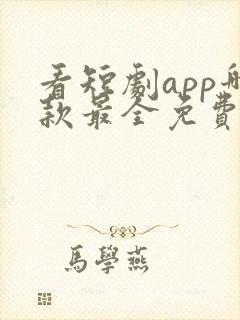 看短劇app哪
款最全免費
馬學燕